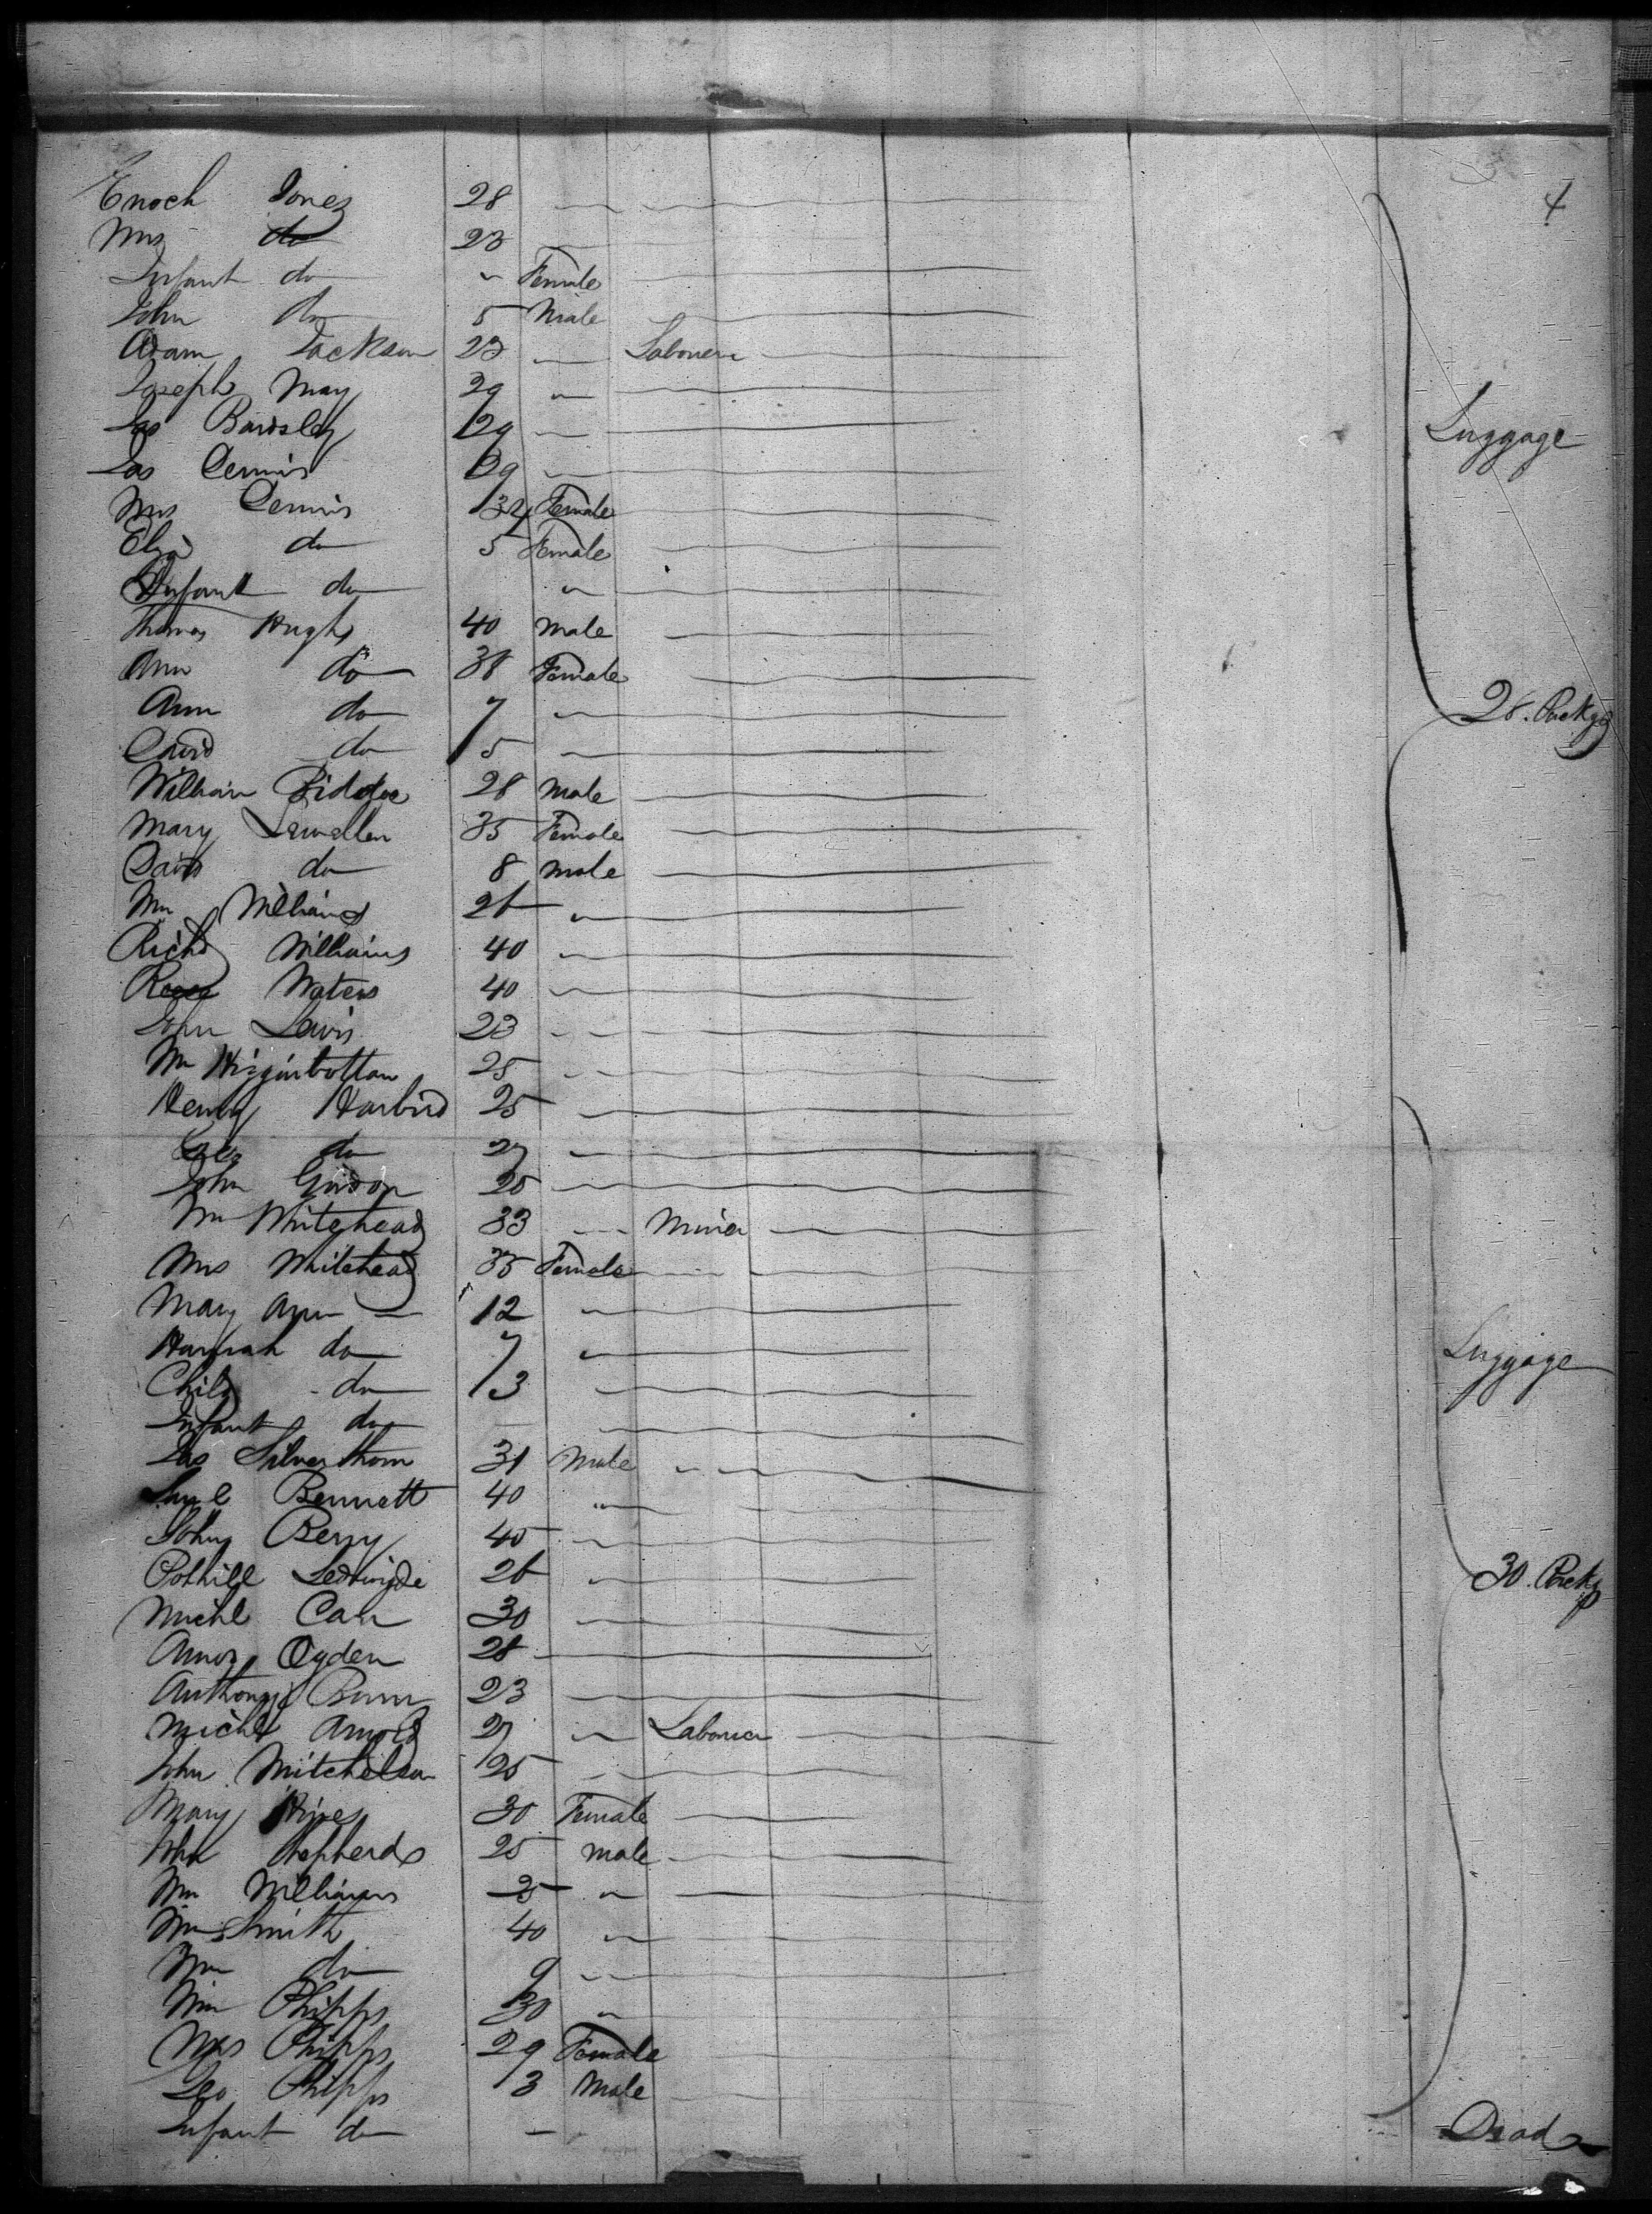 4
Enoch Jones 28
Mrs do 23
Infant do " Female
John do 5 Male
Adam Jackson 23 " Labourer
Joseph May 29 "
Jas Bardsley 29 "
Jas Dennis 29 "
Mrs Dennis 34 Female
Eliza do 5 Female
Infant do "
Thomas Hughs 40 Male
Ann do 38 Female
Ann do 7 "
David do 5 "
William 28 Male
Mary Lewellen 35 Female
David do 8 Male
Wm Williams 26 "
Richd Williams 40 "
Waters 40 "
John Lewis 23 "
Wm Higginbottom 25 "
Henry Harbird 25 "
do 27 "
John Gordon 25 "
Wm Whitehead 33 " Miner
Mrs Whitehead 35 Female
Mary Ann — 12 "
Hannah do 7 "
Child do 3 "
Infant do — "
Jas Silverthorn 31 Male
Saml Bennett 40 "
John Berry 45 "
26 "
Michl Carr 30 "
Amos Ogden 28
Anthony 23
Michl Arnold 27 " Labourer
John Mitchelson 25 "
Mary Hines 30 Female
John Shepherd 25 Male
Wm Williams 25 "
Wm Smith 40 "
Wm do 9 "
Wm Phipps 30 "
Mrs Phipps 29 Female
Geo Phipps 3 Male
Infant do —
Luggage
28. Packgs
Luggage
30. Packgs
Dead